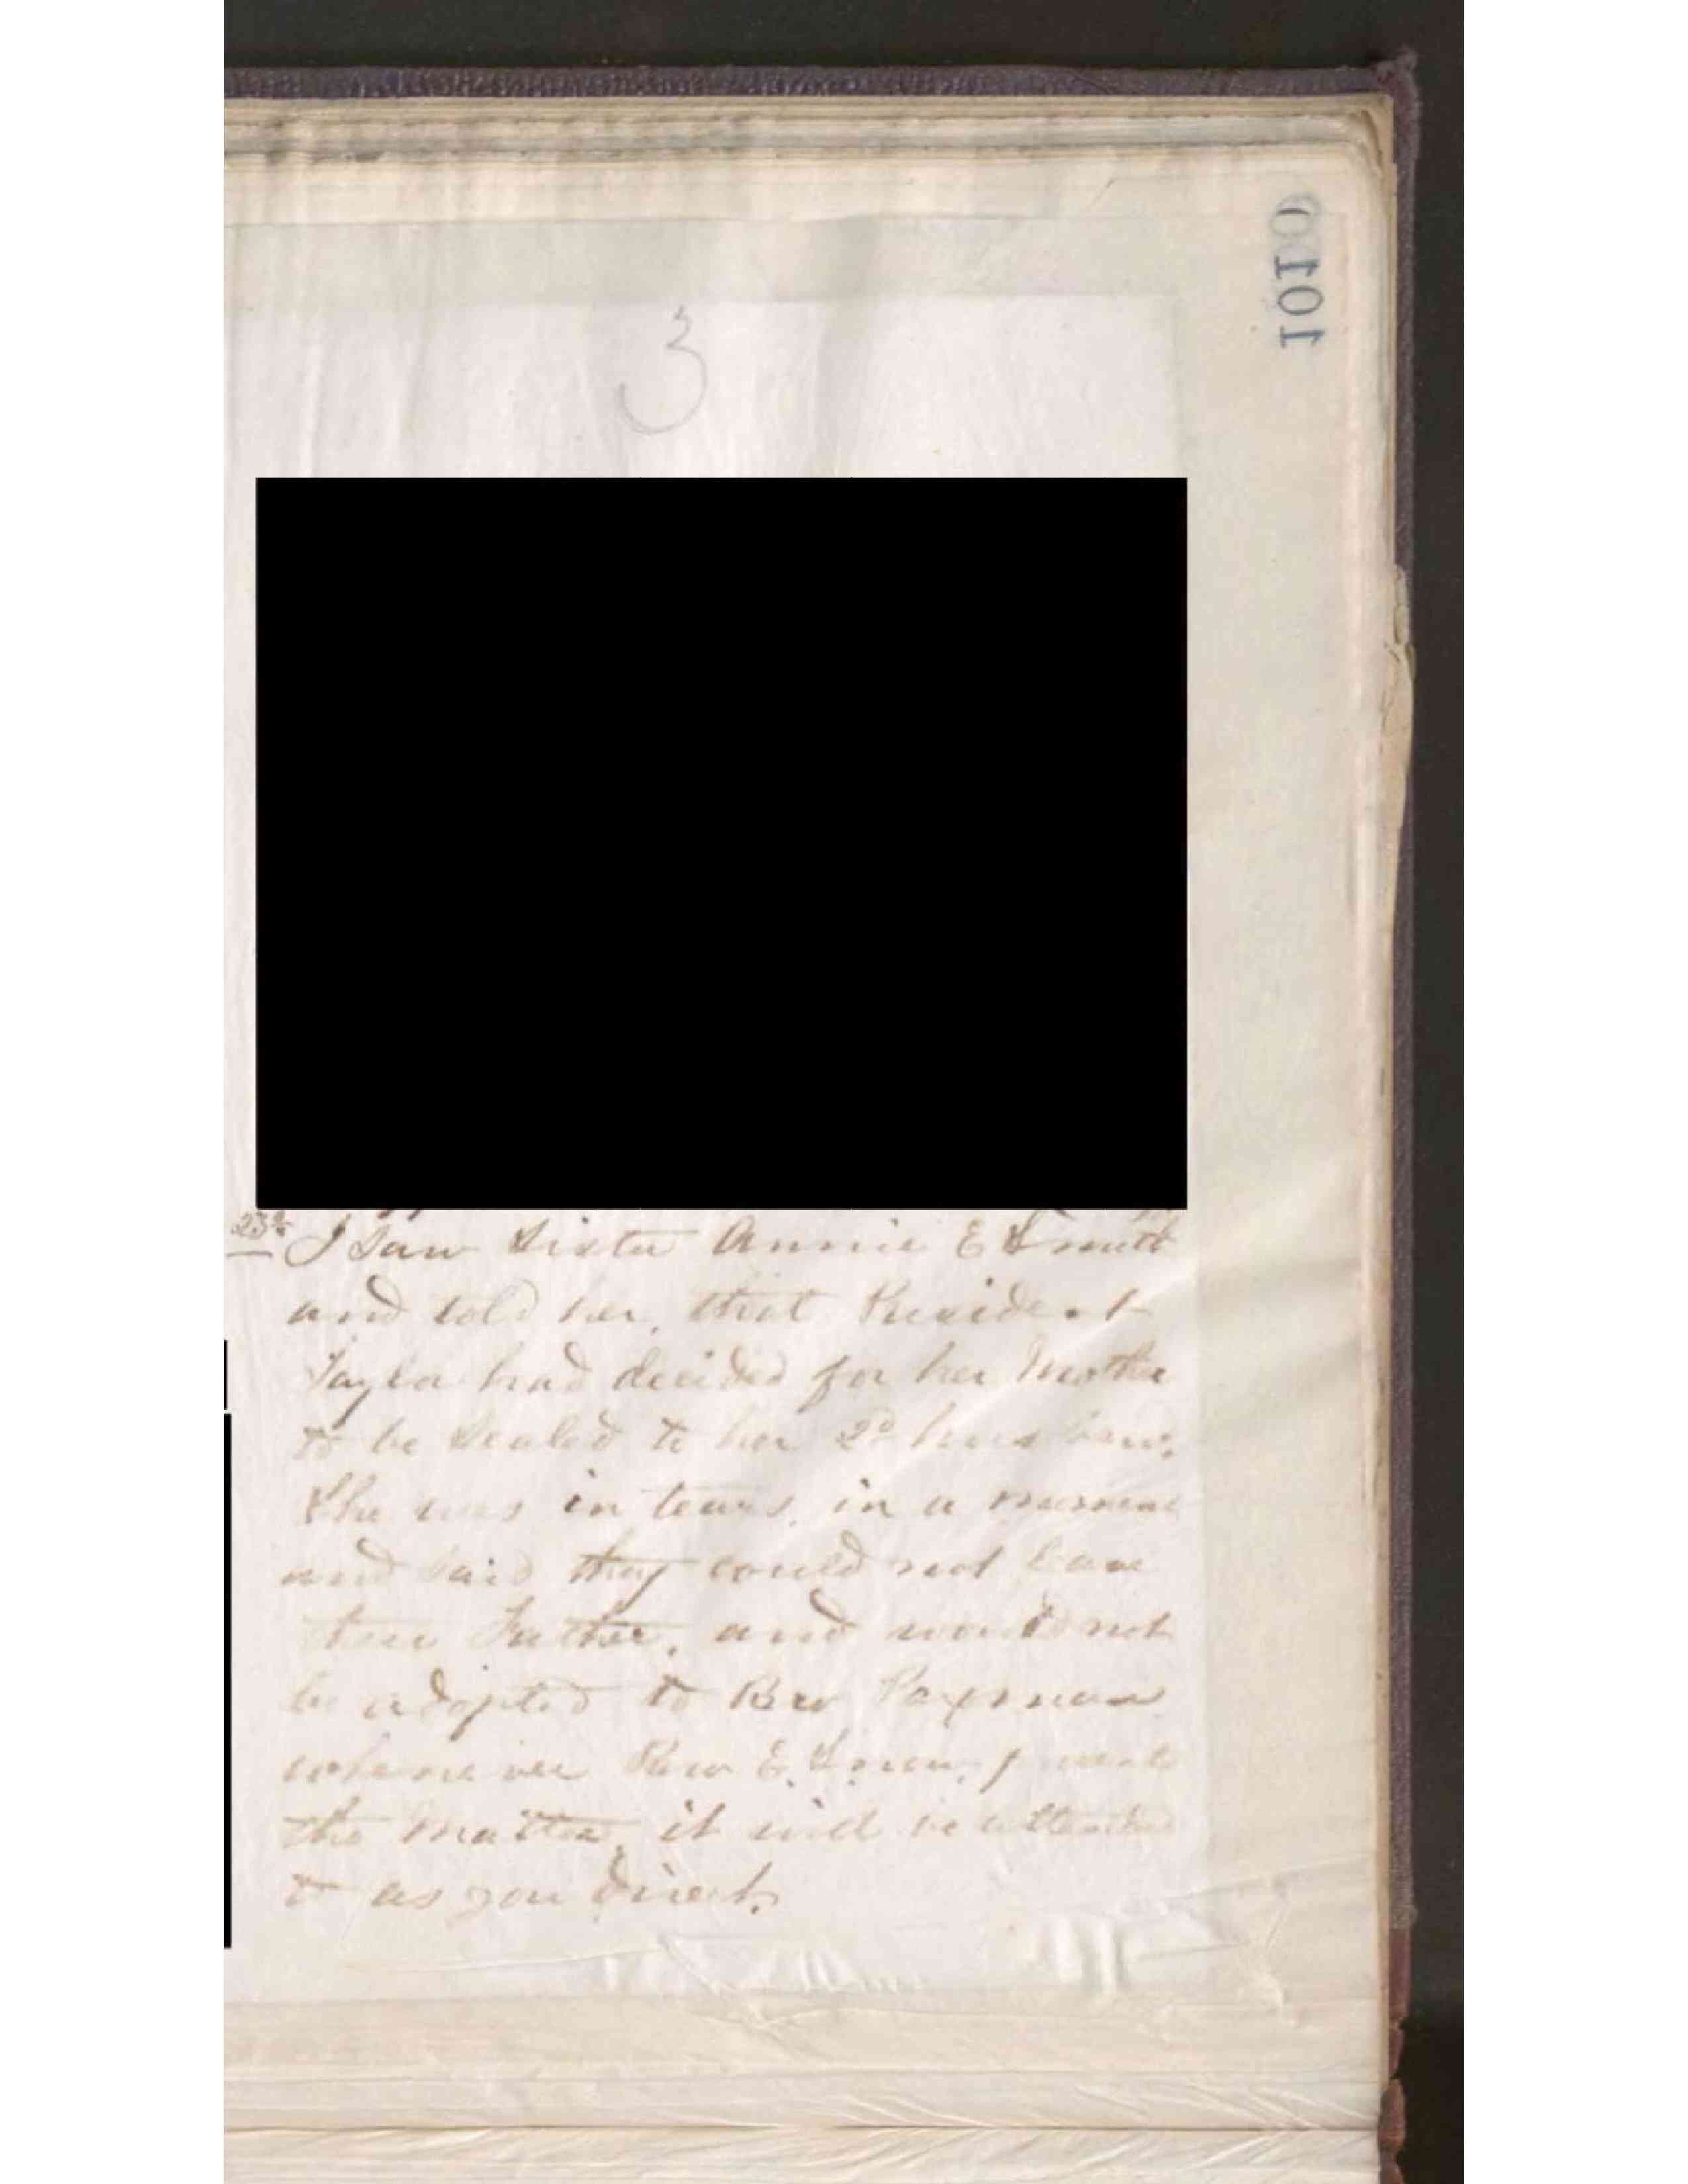 3
1010
23d I Saw Sister Annie E Smith
and told her, that President
Taylor had decided for her Mother
to be Sealed to her 2d husband.
She was in tears, in a moment
and said they could not leave
their Father, and would not
be adopted to Bro Paxman
whenever Bro E. Snow,
the Matter, it will be attended
to as you direct.